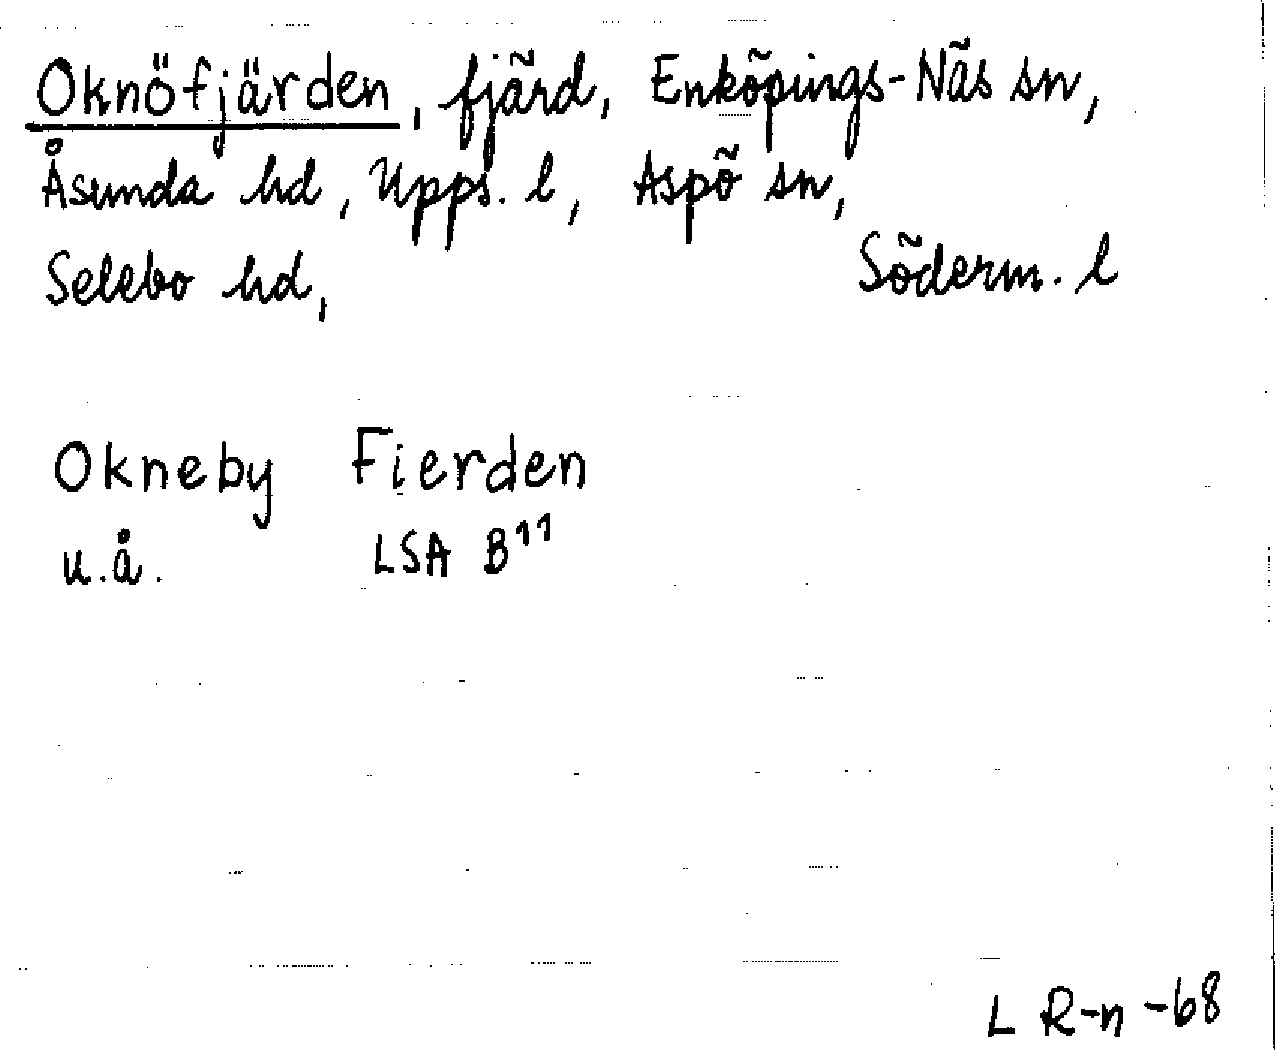 Oknöfjärden, fjärd, Enköpings-Näs sn,
Åsunda hd, Upps. l, Aspö sn,
Selebo hd, Söderm. l
Okneby Fierden
u.å. LSA B11
L R-n -68